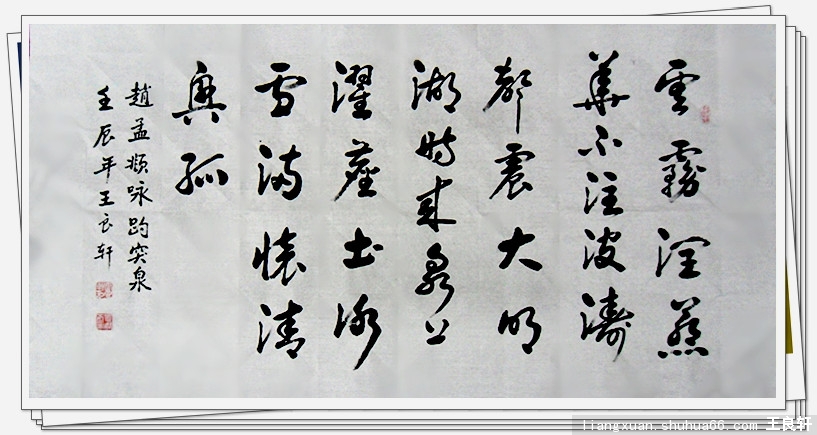 雲霧潤蒸
華不注波濤
聲震大明
湖時來泉上
濯塵土冰
雪滿懷清
興孤
趙孟頫咏趵突泉
壬辰年王良轩
liangxuan.shuhua66.com 王良轩